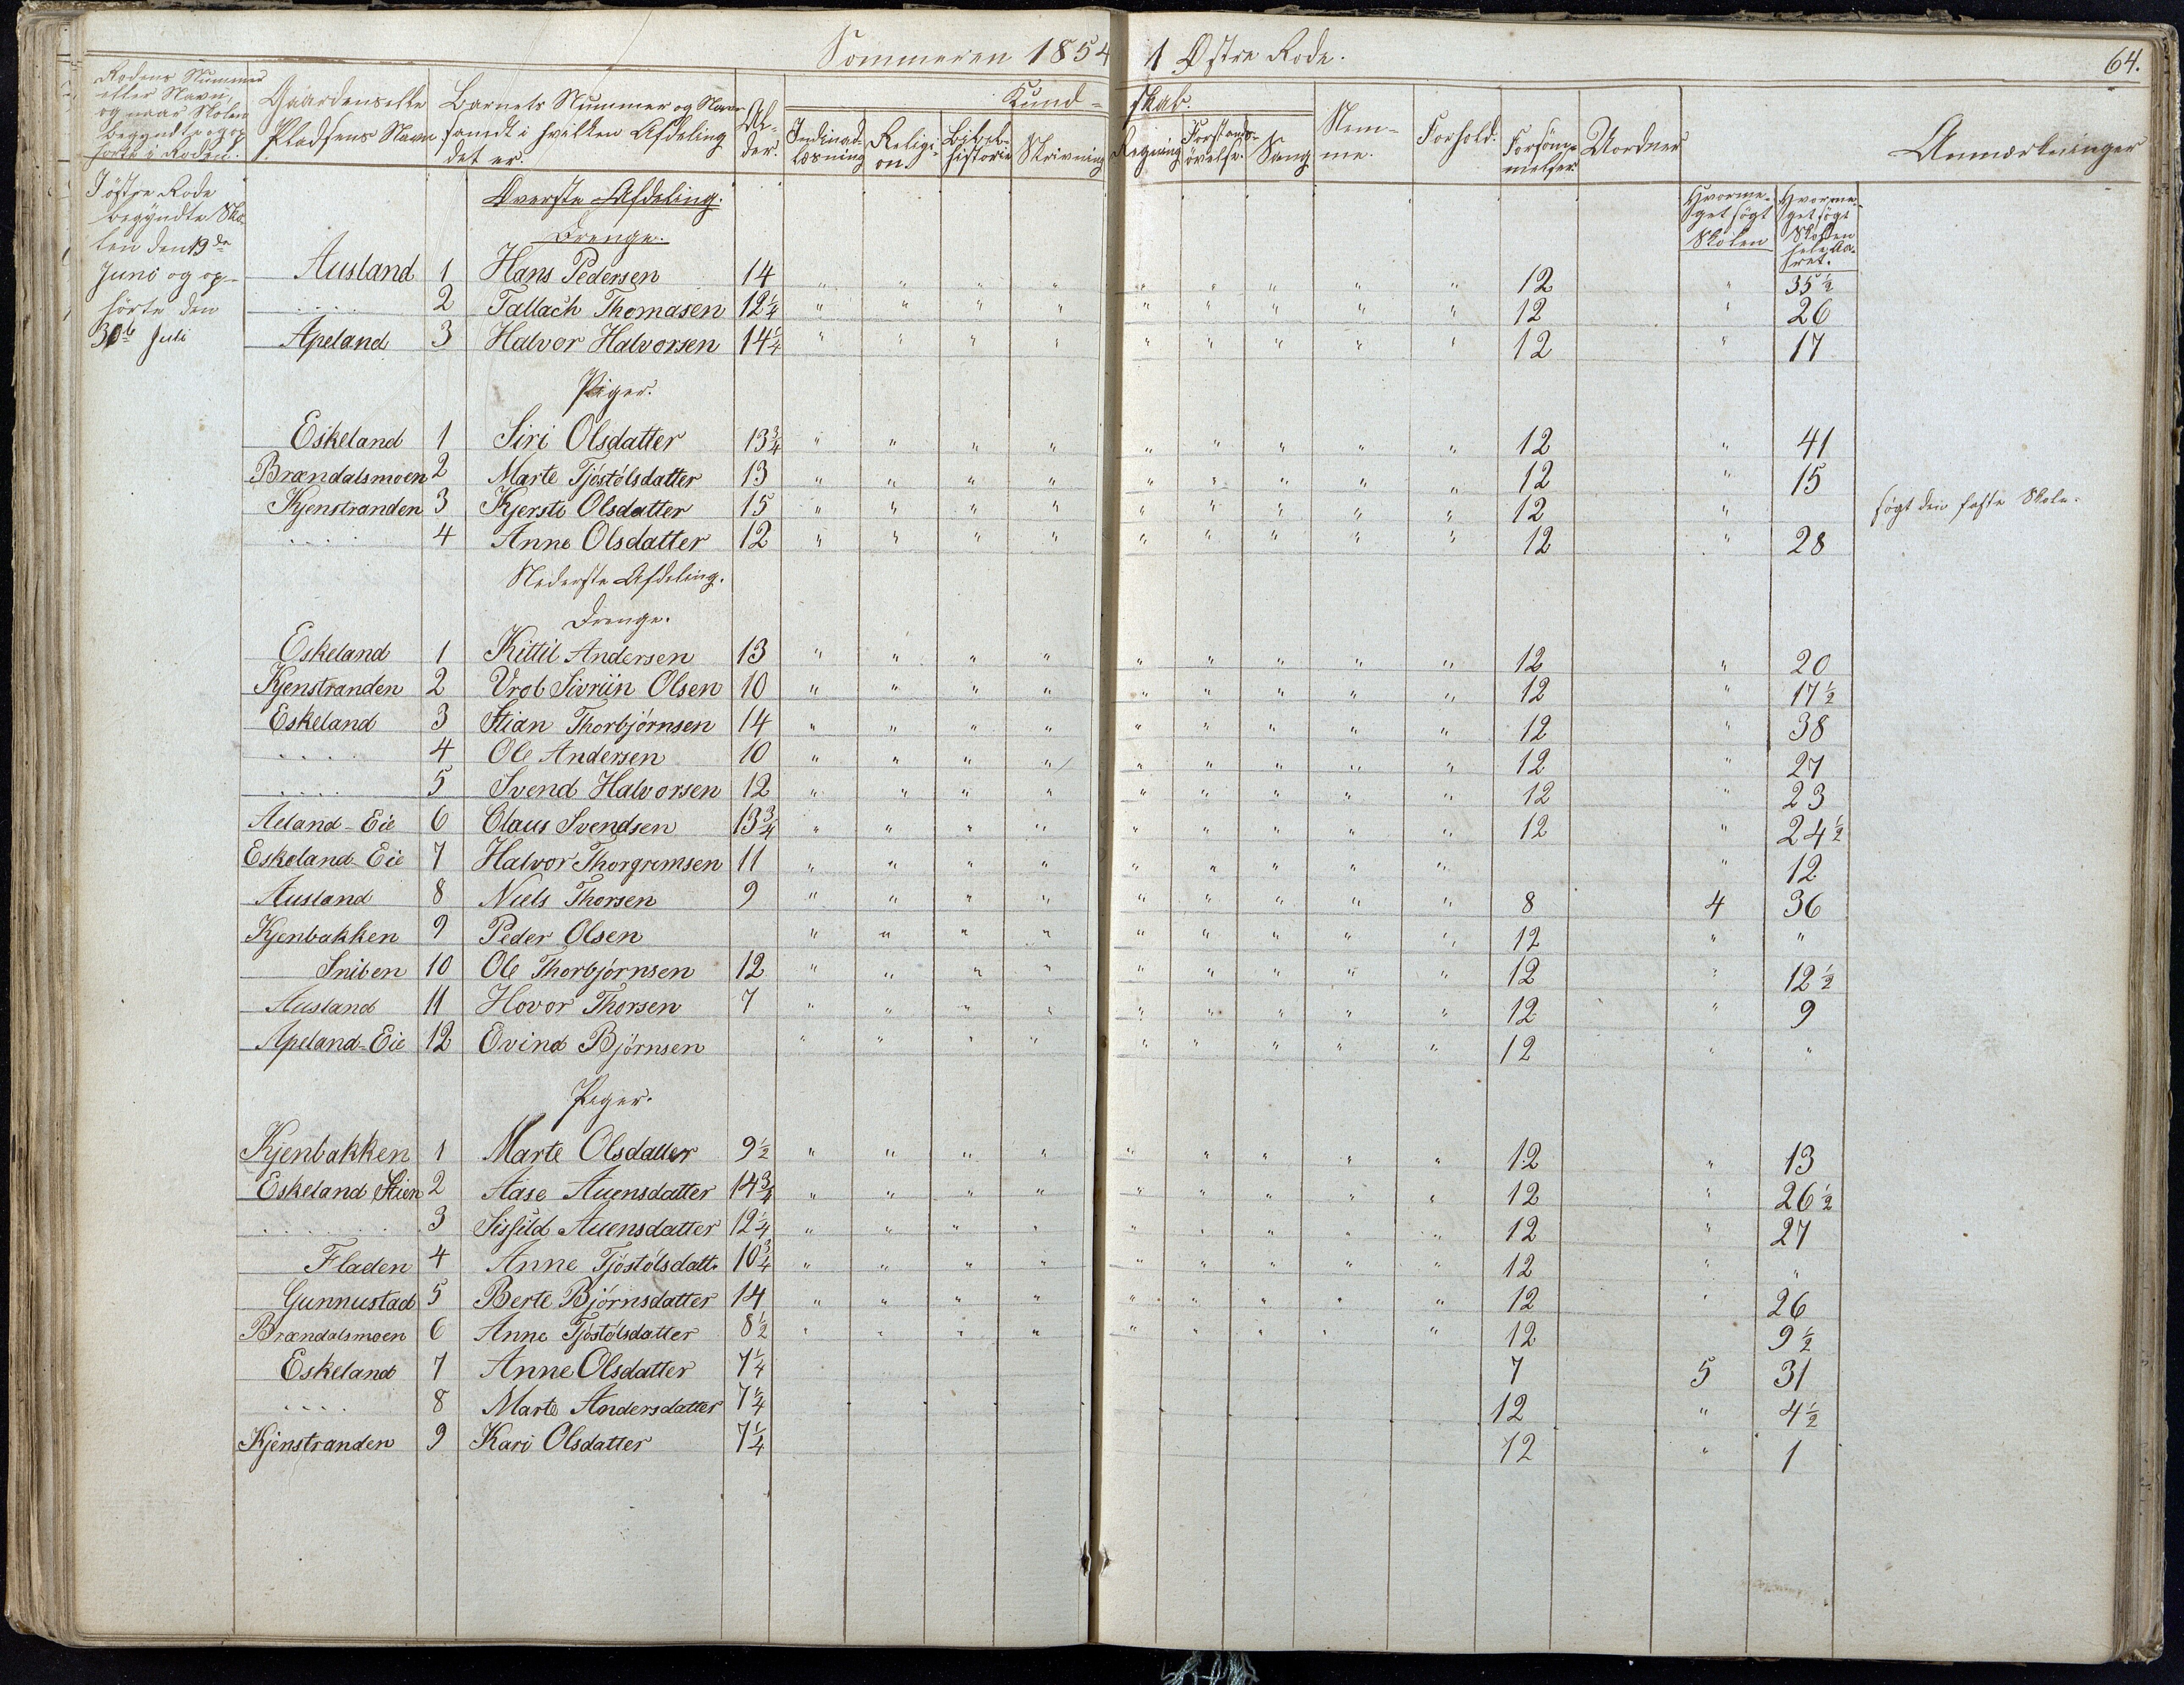 Sommeren 1854 1 Østre Rode. 64.
Rodens Nummer eller Navn, og naar Skolen begyndte og ophørte i Roden.
Gaardens eller Pladsens Navn
Barnets Nummer og Navn samt i hvilken Afdeling det er.
Al-der.
Kund-skab.
Indenad-læsning Religi-on Bibel-historie Skrivning Regning Forstands-øvelse Sang Nem-me. Forhold. Forsöm-melser Uordner Anmærkninger
Hvorme-get søgt Skolen Hvorme-get søgt Skolen hele Aa-ret.
I østre Rode
begyndte Sko-
len den 19de
Juni og op-
hörte den
30te Juli
Överste Afdeling.
Drenge.
Ausland 1 Hans Pedersen 14 " " " " " " " " " 12 " 35½
.... 2 Tallach Thomasen 12¼ " " " " " " " " " 12 " 26
Apeland 3 Halvor Halvorsen 14¼ " " " " " " " " " 12 " 17
Piger.
Eskeland 1 Siri Olsdatter 13¾ " " " " " " " " " 12 " 41
Brændalsmoen 2 Marte Tjöstölsdatter 13 " " " " " " " " " 12 " 15
Kjenstranden 3 Kjersti Olsdatter 15 " " " " " " " " " 12 " søgt den faste Skole.
.... 4 Anne Olsdatter 12 " " " " " " " " " 12 " 28
Nederste Afdeling.
Drenge.
Eskeland 1 Kittil Andersen 13 " " " " " " " " " 12 " 20
Kjenstranden 2 Vrol Sivriin Olsen 10 " " " " " " " " " 12 " 17½
Eskeland 3 Stian Thorbjörnsen 14 " " " " " " " " " 12 " 38
.... 4 Ole Andersen 10 " " " " " " " " " 12 " 27
.... 5 Svend Halvorsen 12 " " " " " " " " " 12 " 23
Aeland-Eie 6 Claus Svendsen 13¾ " " " " " " " " " 12 " 24½
Eskeland-Eie 7 Halvor Thorgrimsen 11 " " " " " " " " " " 12
Ausland 8 Niels Thorsen 9 " " " " " " " " " 8 4 36
Kjenbakken 9 Peder Olsen " " " " " " " " " 12 " "
Sniben 10 Ole Thorbjörnsen 12 " " " " " " " " " 12 " 12½
Ausland 11 Hovor Thorsen 7 " " " " " " " " " 12 " 9
Apeland-Eie 12 Evind Björnsen " " " " " " " " " 12 " "
Piger.
Kjenbakken 1 Marte Olsdatter 9½ " " " " " " " " " 12 " 13
Eskeland Stien 2 Aase Auensdatter 14¾ " " " " " " " " " 12 " 26½
.... 3 Sissild Auensdatter 12¼ " " " " " " " " " 12 " 27
Fladen 4 Anne Tjöstölsdatt. 10¾ " " " " " " " " " 12 " "
Gunnustad 5 Berte Björnsdatter 14 " " " " " " " " " 12 " 26
Brændalsmoen 6 Anne Tjöstölsdatter 8½ " " " " " " " " " 12 9½
Eskeland 7 Anne Olsdatter 7¼ 7 5 31
.... 8 Marte Andersdatter 7¼ 12 " 4½
Kjenstranden 9 Kari Olsdatter 7¼ 12 " 1